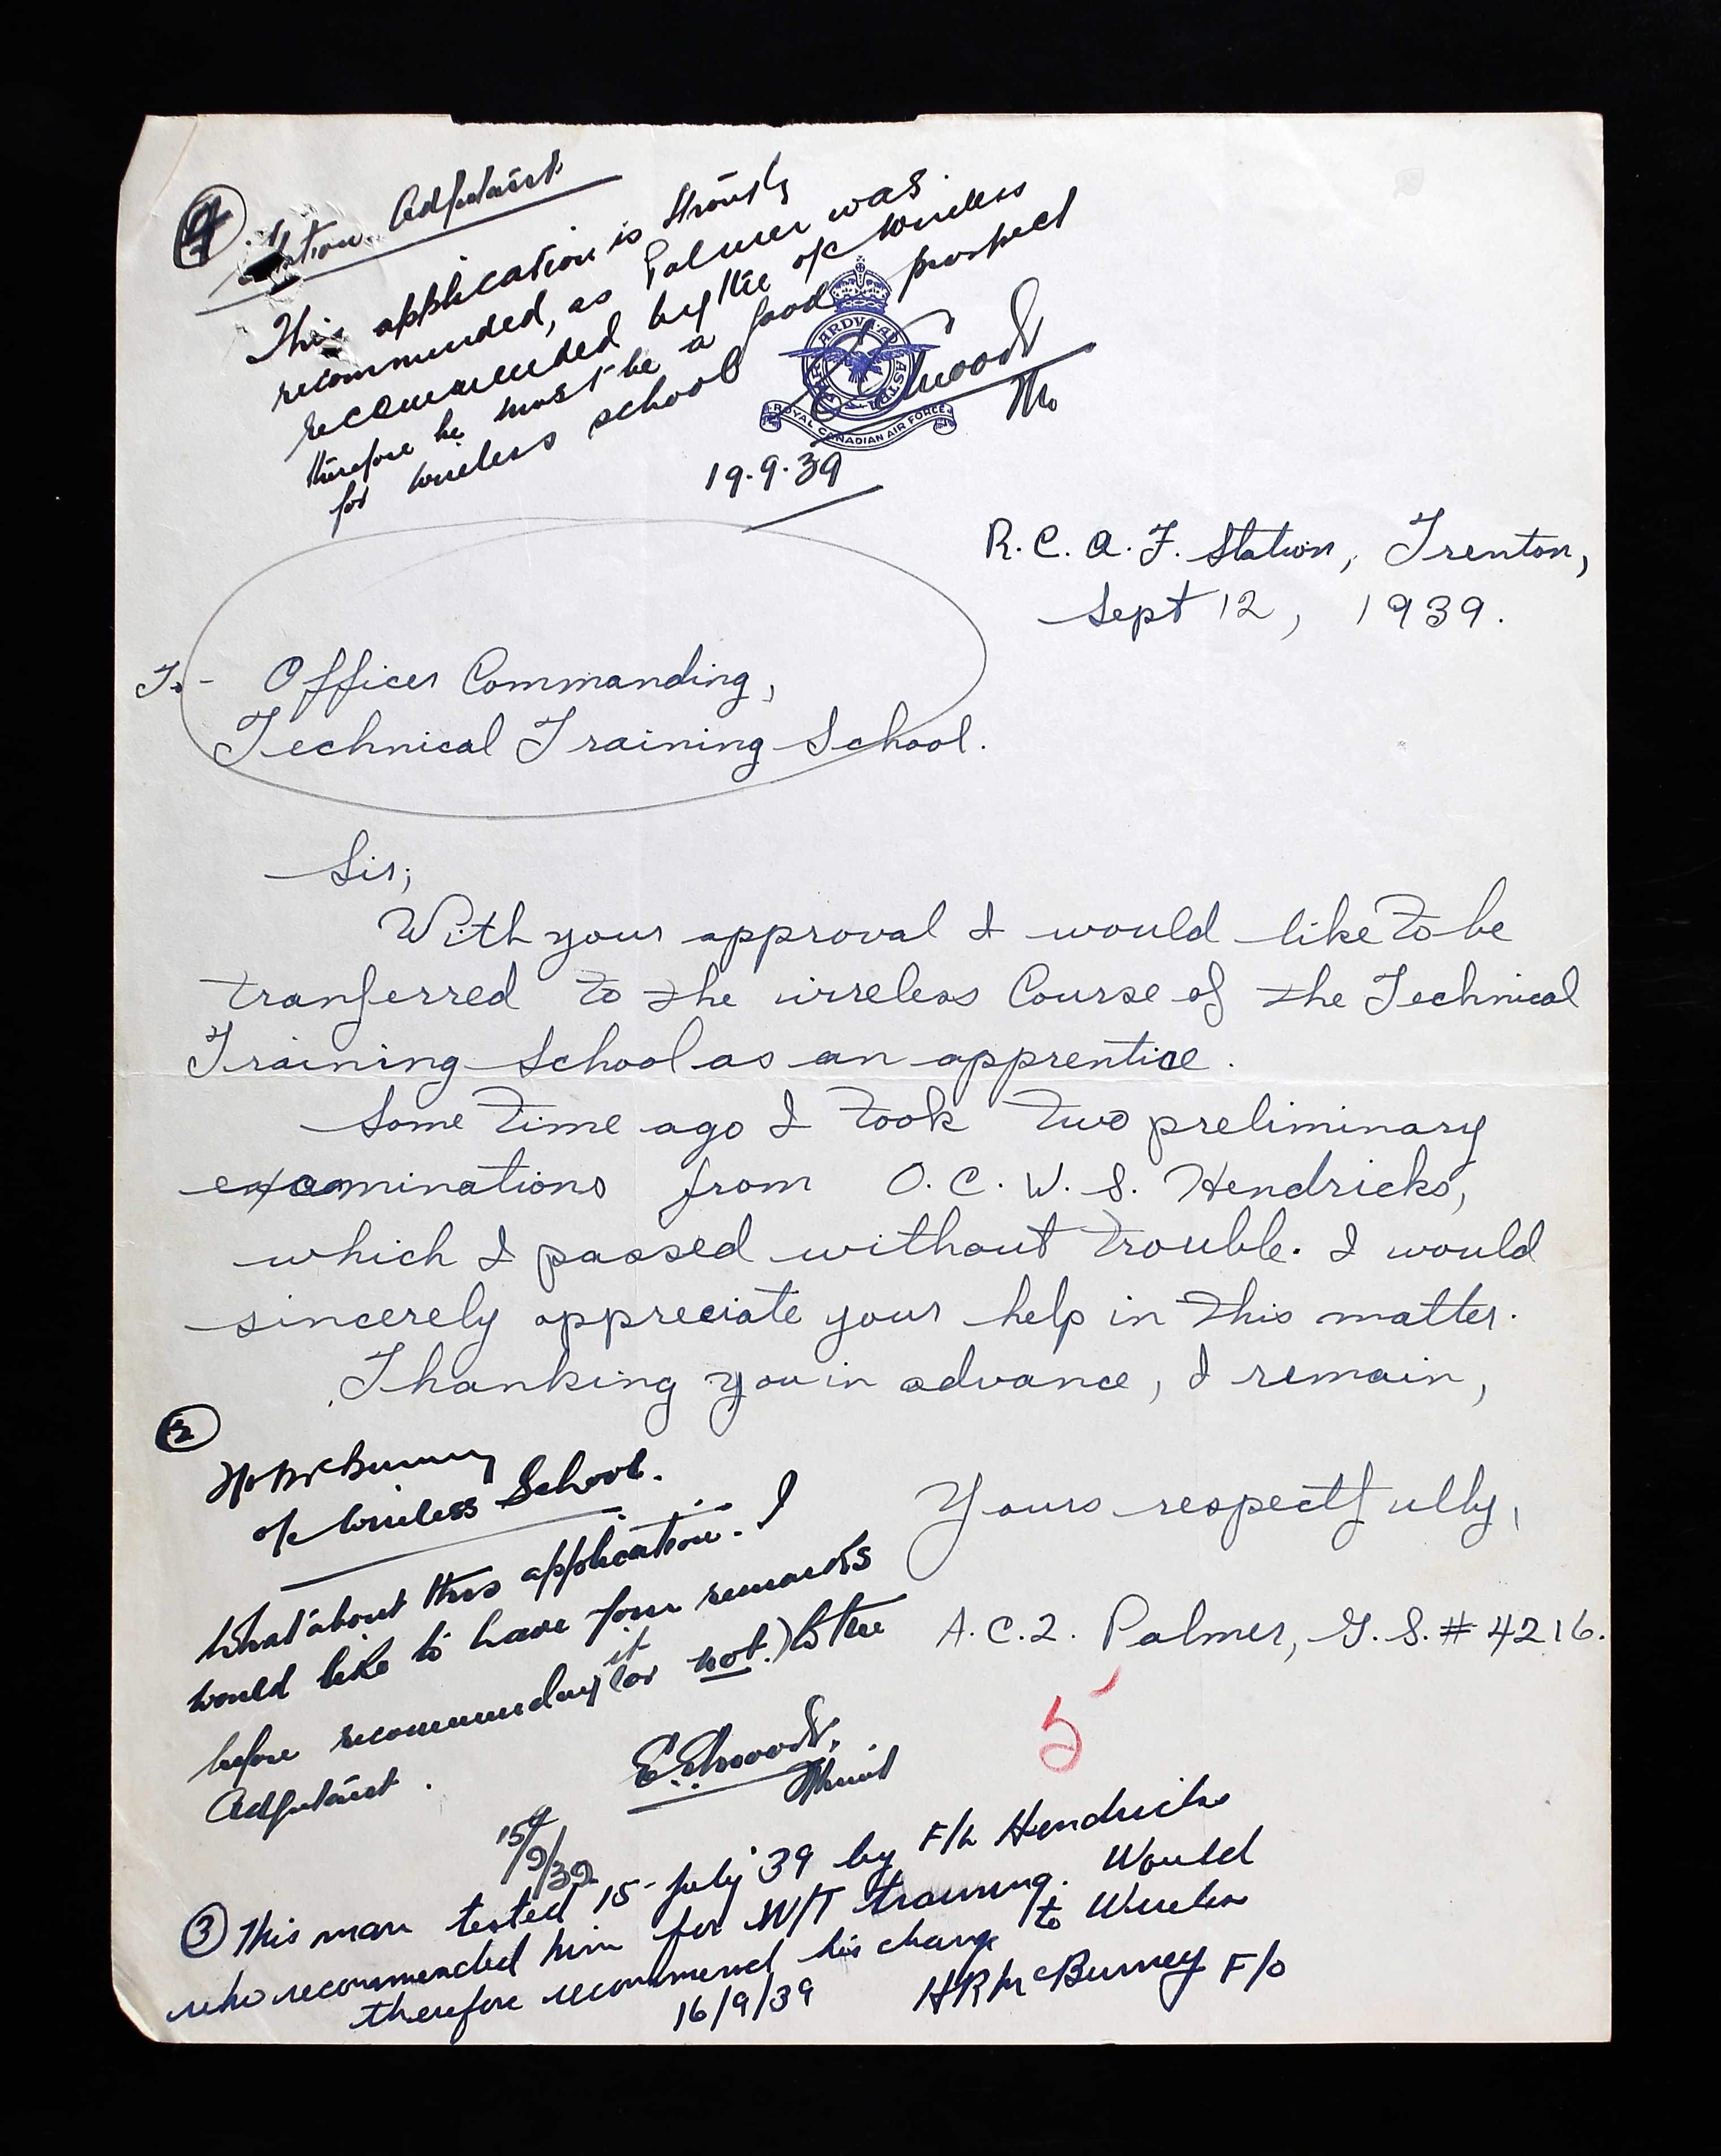 4
Station Adjutant
This application is strongly
recommended, as Palmer was
recommended by the o/c Wireless
therefore he must be a good prospect
for wireless school
19.9.39
PER ARDVA AD ASTRA
ROYAL CANADIAN AIR FORCE
R.C.A.F. Station, Trenton,
Sept 12, 1939.
To- Officer Commanding,
Technical Training School.
Sir;
With your approval I would like to be
tranferred to the wireless Course of the Technical
Training School as an apprentice.
Some time ago I took two preliminary
examinations from O.C.W.S. Hendricks,
which I passed without trouble. I would
sincerely appreciate your help in this matter.
Thanking you in advance, I remain,
Yours respectfully,
A.C.2. Palmer, G.S. # 4216.
5
2
F/O McBurney
o/c Wireless School.
What about this application. I
would like to have your remarks
before recommending it (or not.) to the
Adjutant.
15/9/39
3 This man tested 15 July '39 by F/L Hendricks
who recommended him for W/T training. Would
therefore recommend his change to Wireless
16/9/39 HR McBurney F/O